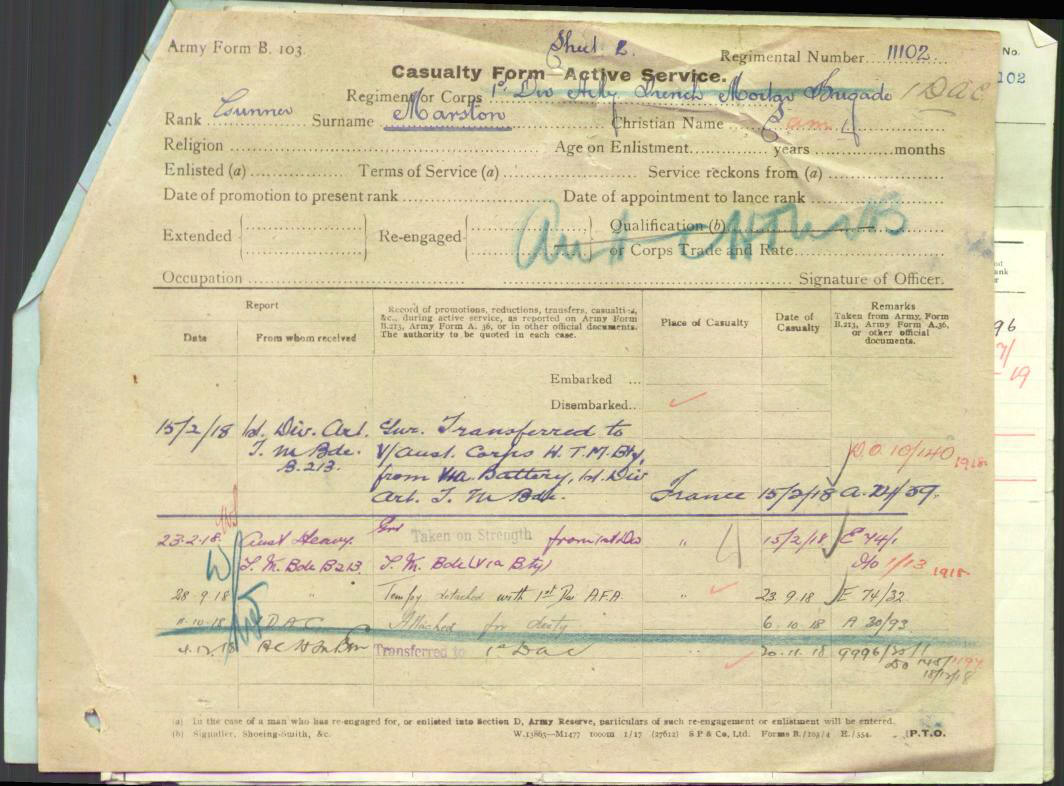 Army Form B. 103.
Sheet 2.
Regimental Number 11102
Casualty Form—Active Service.
Regiment or Corps 1st Div Arty Trench Mortar Brigade 1 DAC
Rank Gunner Surname Marston Christian Name
Religion Age on Enlistment years months
Enlisted (a) Terms of Service (a) Service reckons from (a)
Date of promotion to present rank Date of appointment to lance rank
Extended Re-engaged Qualification (b)
or Corps Trade and Rate
Occupation Signature of Officer.
Report
Date From whom received
Record of promotions, reductions, transfers, casualties,
&c., during active service, as reported on Army Form
B.213, Army Form A. 36, or in other official documents.
The authority to be quoted in each case.
Place of Casualty
Date of
Casualty
Remarks
Taken from Army, Form
B.213, Army Form A.36,
or other official
documents.
Embarked ...
Disembarked..
15/2/18 1st. Div. Art. Gnr. Transferred to
T. M Bde. V/Aust. Corps H. T.M. Bty, D.O. 10/140 1918
B.213. from Battery, 1st. Div
Art. T. M Bde. France 15/2/18 A. 59.
23.2.18 Aust Heavy Gnr Taken on Strength from 1st Div " 15/2/18 E 74/1
T. M. Bde B213 T. M. Bde (V1a Bty) 1/13 1918
28.9.18 " Tempy detached with 1st Div A.F.A. " 23.9.18 E 74/32
11.10.18 D A C Attached for duty 6.10.18 A 30/93
4.12.18 Transferred to 1st DAC " 20.11.18
18/12/18
(a) In the case of a man who has re-engaged for, or enlisted into Section D, Army Reserve, particulars of such re-engagement or enlistment will be entered.
(b) Signaller, Shoeing-Smith, &c. W.13863—M1477 1000m 1/17 (27612) S P & Co., Ltd. Forms B./103/4 E./354. [P.T.O.
No.
102
96
19